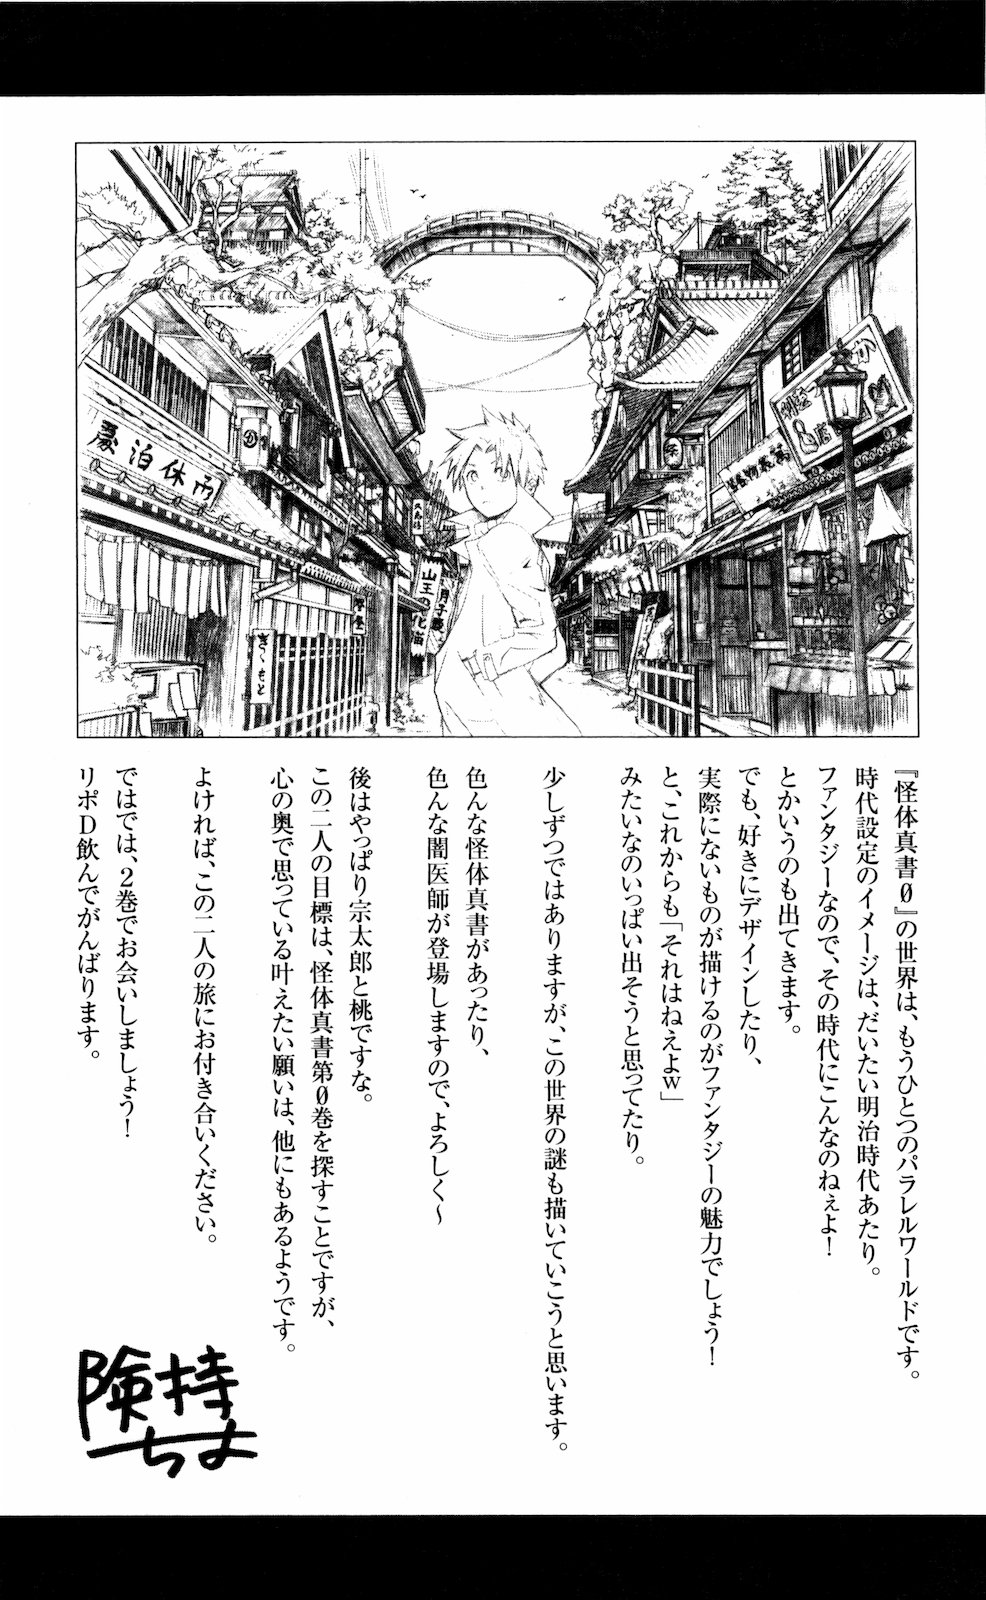 慶泊休所
きくもと
山王の化猫
『怪体真書0』の世界は、もうひとつのパラレルワールドです。
時代設定のイメージは、だいたい明治時代あたり。
ファンタジーなので、その時代にこんなのねぇよ!
とかいうのも出てきます。
でも、好きにデザインしたり、
実際にないものが描けるのがファンタジーの魅力でしょう!
と、これからも「それはねえよw」
みたいなのいっぱい出そうと思ってたり。
少しずつではありますが、この世界の謎も描いていこうと思います。
色んな怪体真書があったり、
色んな闇医師が登場しますので、よろしく〜
後はやっぱり宗太郎と桃ですな。
この二人の目標は、怪体真書第0巻を探すことですが、
心の奥で思っている叶えたい願いは、他にもあるようです。
よければ、この二人の旅にお付き合いください。
ではでは、2巻でお会いしましょう!
リポD飲んでがんばります。
険持
ちよ